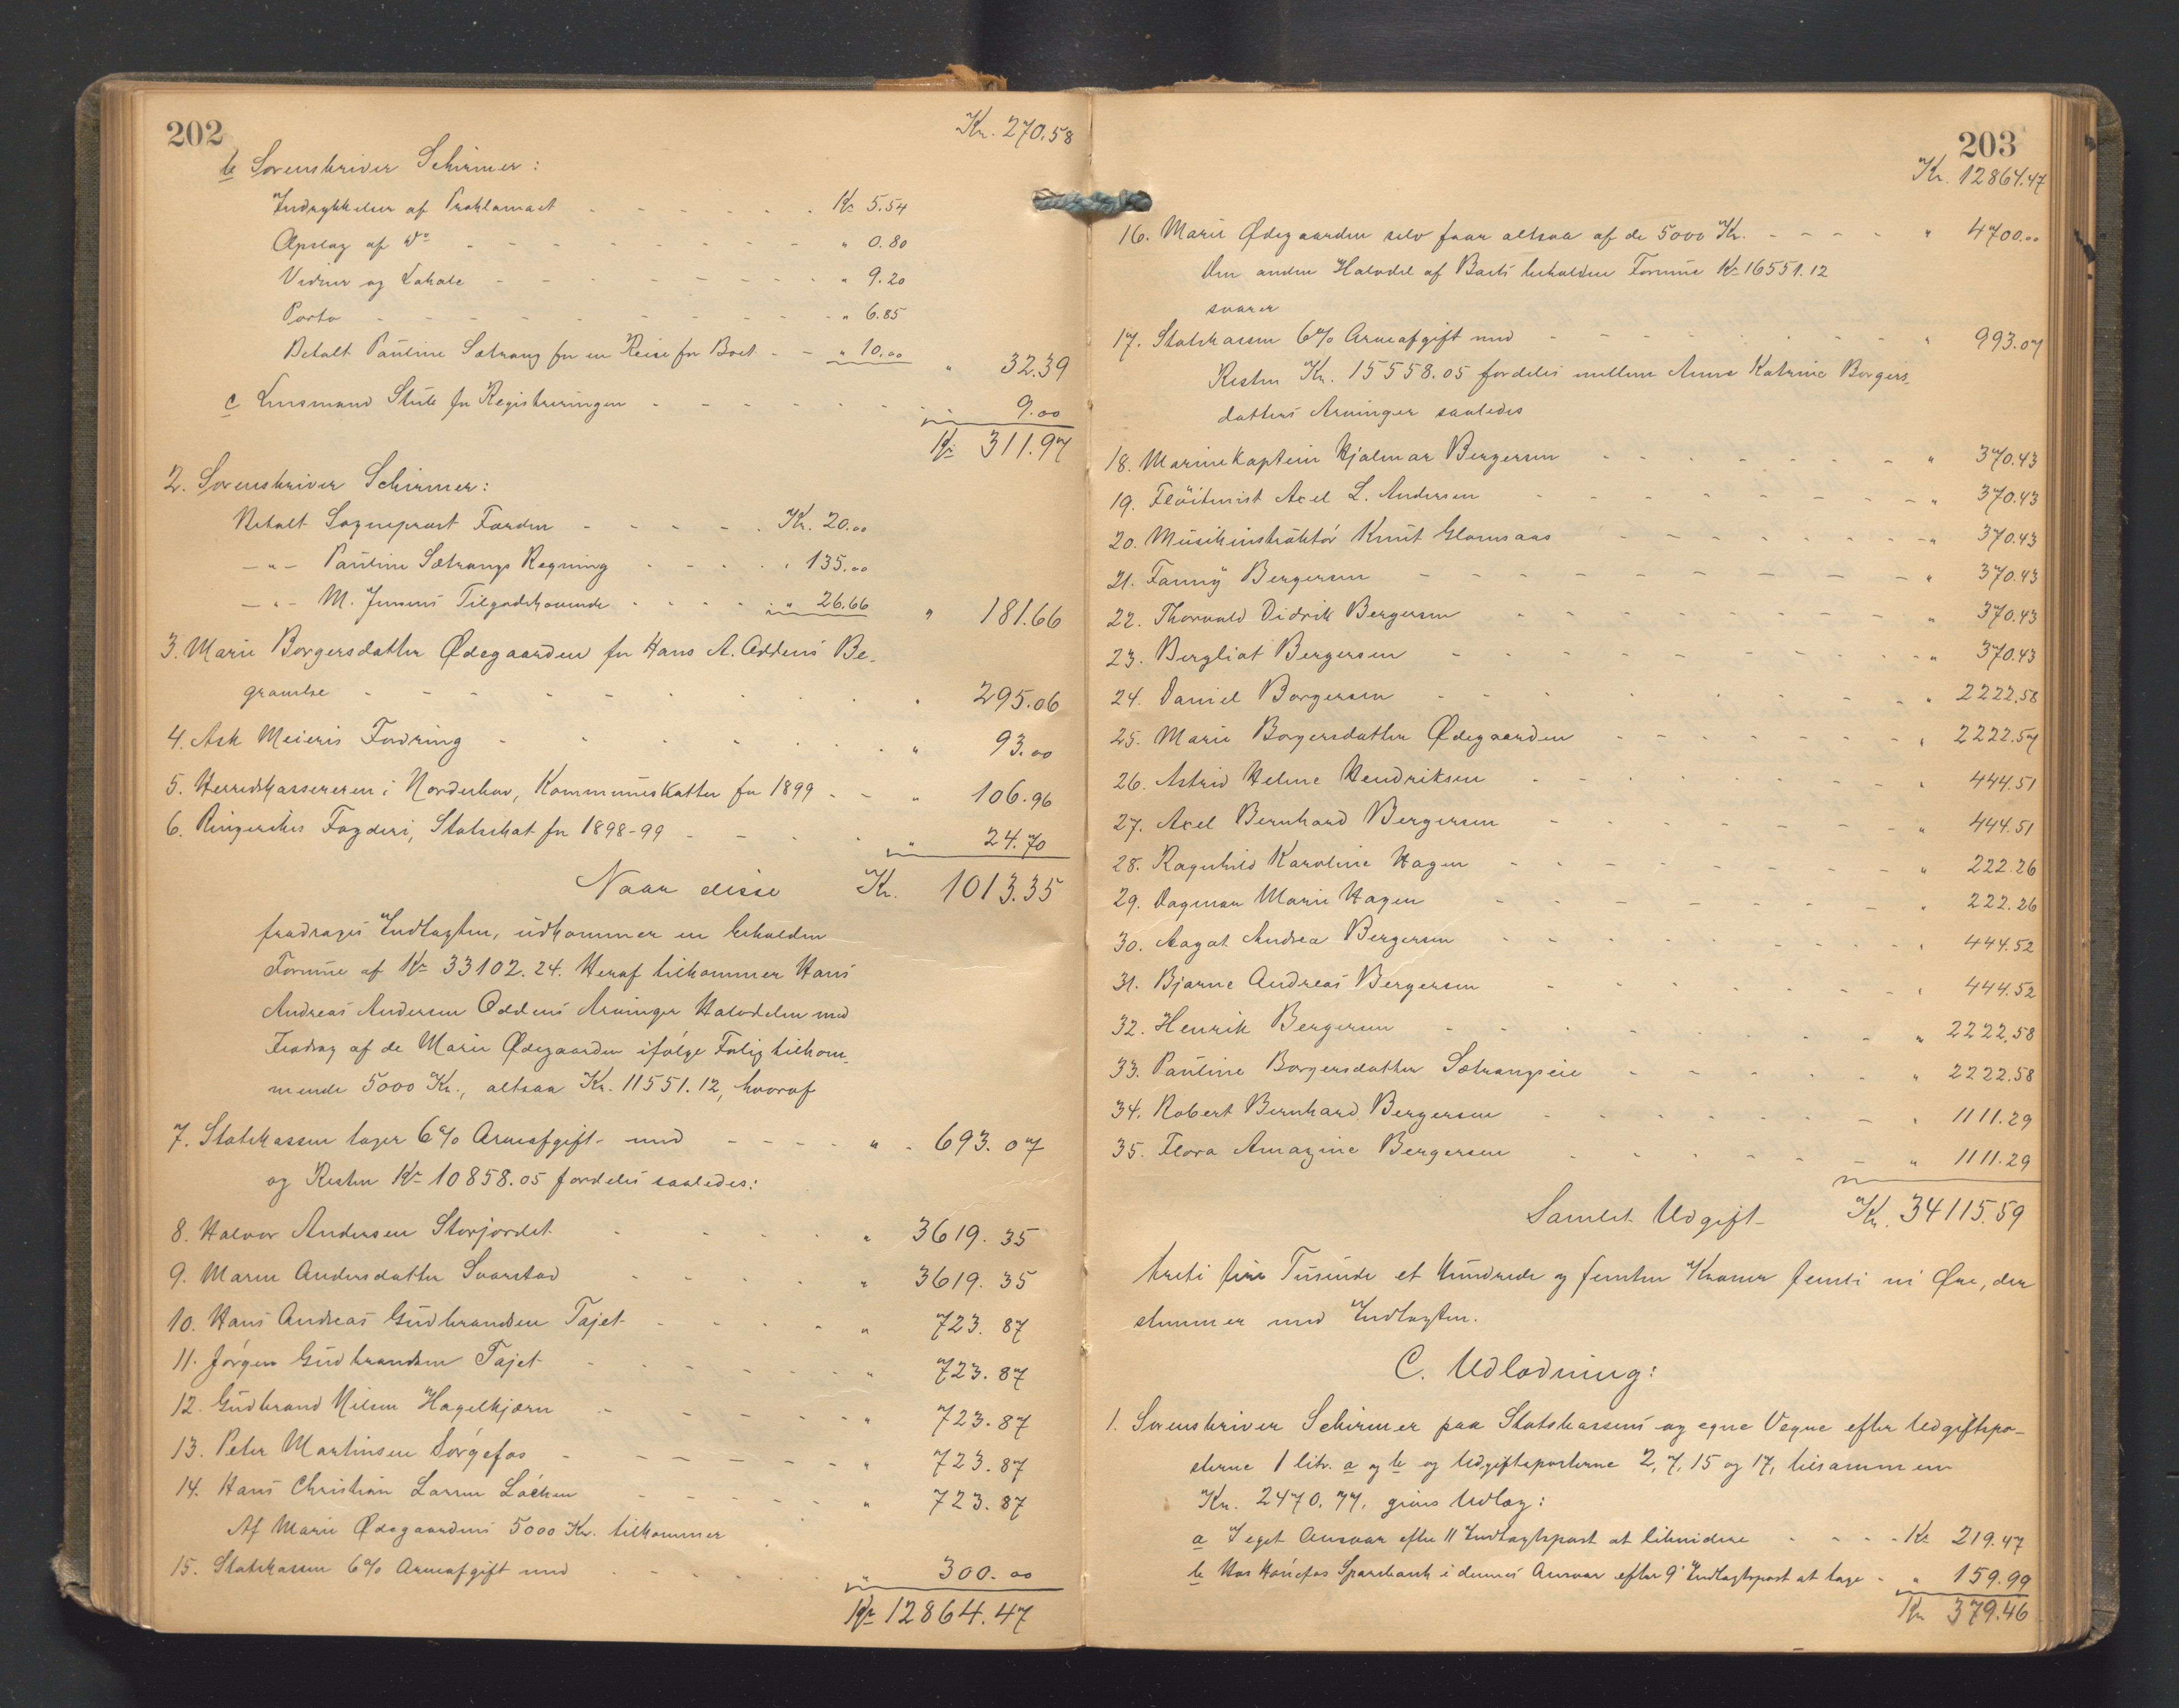 202
Kr. 270.58
b Sorenskriver Schirmer:
Indrykkelser af Proklamaet - - - - - - Kr 5.54
Opslag af Do - - - - - - " 0.80
Vidner og Lokale - - - - - - " 9.20
Porto - - - - - - " 6.85
Betalt Pauline Sætrang for en Reise for Boet - - " 10.00 " 32.39
c Lensmand Stub for Registreringen - - - - - - " 9.00
Kr 311.97
2. Sorenskriver Schirmer:
Betalt Sogneprest Farden - - - - - Kr. 20.00
- " - Pauline Sætrangs Regning - - - - " 135.00
- " - M. Jensens Tilgodehavende - - - - " 26.66 " 181.66
3. Marie Borgersdatter Ødegaarden for Hans A. Oddens Be-
gravelse - - - - - - " 295.06
4. Ask Meieris Fordring - - - - - - " 93.00
5. Herredskassereren i Norderhov, Kommuneskatter for 1899 - - " 106.96
6. Ringerikes Fogderi, Statsskat for 1898-99 - - - - " 24.70
Naar disse Kr. 1013.35
fradrages Indtægten, udkommer en beholden
Formue af Kr 33102.24. Heraf tilkommer Hans
Andreas Andersen Oddens Arvinger Halvdelen med
Fradrag af de Marie Ødegaarden ifølge Forlig tilkom-
mende 5000 Kr., altsaa Kr. 11551.12, hvoraf
7. Statskassen tager 6% Arveafgift med - - - - " 693.07
og Resten Kr 10858.05 fordeles saaledes:
8. Halvor Andersen Storjordet - - - - " 3619.35
9. Maren Andersdatter Svarstad - - - - " 3619.35
10. Hans Andreas Gudbrandsen Tajet - - - - " 723.87
11. Jørgen Gudbrandsen Tajet - - - - " 723.87
12. Gudbrand Nilsen Hagelkjærn - - - - " 723.87
13. Peter Martinsen Sørgefos - - - - " 723.87
14. Hans Christian Larsen Løcken - - - - " 723.87
Af Marie Ødegaardens 5000 Kr. tilkommer
15. Statskassen 6% Arveafgift med - - - - " 300.00
Kr 12864.47
203
Kr. 12864.47
16. Marie Ødegaarden selv faar altsaa af de 5000 Kr. - - - - " 4700.00
Den anden Halvdel af Boets beholdne Formue Kr 16551.12
svarer
17. Statskassen 6% Arveafgift med - - - - " 993.07
Resten Kr. 15558.05 fordeles mellem Anne Katrine Borgers-
datters Arvinger saaledes
18. Marinekaptein Hjalmar Bergersen - - - - " 370.43
19. Fløitenist Axel L. Andersen - - - - " 370.43
20. Musikinstruktør Knut Glomsaas - - - - " 370.43
21. Fanny Bergersen - - - - " 370.43
22. Thorvald Didrik Bergersen - - - - " 370.43
23. Bergliot Bergersen - - - - " 370.43
24. Daniel Borgersen - - - - " 2222.58
25. Marie Borgersdatter Ødegaarden - - - - " 2222.57
26. Astrid Helene Hendriksen - - - - " 444.51
27. Axel Bernhard Bergersen - - - - " 444.51
28. Ragnhild Karoline Hagen - - - - " 222.26
29. Dagmar Marie Hagen - - - - " 222.26
30. Aagot Andrea Bergersen - - - - " 444.52
31. Bjarne Andreas Bergersen - - - - " 444.52
32. Henrik Bergersen - - - - " 2222.58
33. Pauline Borgersdatter Sætrangseie - - - - " 2222.58
34. Robert Bernhard Bergersen - - - - " 1111.29
35. Flora Amazine Bergersen - - - - " 1111.29
Samlet Udgift Kr. 34115.59
treti fire Tusinde et Hundrede og femten Kroner femti ni Øre, der
stemmer med Indtægten.
C. Udlodning:
1. Sorenskriver Schirmer paa Statskassens og egne Vegne efter Udgiftspo-
sterne 1 litr. a og b og Udgiftsposterne 2, 7, 15 og 17, tilsammen
Kr. 2470.77, gives Udlæg:
a I eget Ansvar efter 11 Indtægtspost at likvidere - - - - Kr 219.47
b Hos Hønefos Sparebank i dennes Ansvar efter 9 Indtægtspost at tage - " 159.99
Kr 379.46